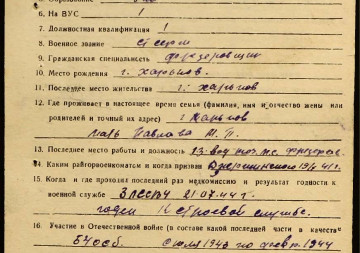 6, На ВУС 1
7, Должностная квалификация 1
8, Военное звание ст серж
9, Гражданская специальность фрезеровщик
10, Место рождения г. Харьков
11, Последнее место жительства г. Харьков
12, Где проживает в настоящее время семья (фамилия, имя и отчество жены или
родителей и точный их адрес) г Харьков
мать Павлова М. П.
13, Последнее место работы и должность фрезеров.
14, Каким райгорвоенкоматом и когда призван Дзержинского 41 г.
15, Когда и где проходил последний раз медкомиссию и результат годности к
военной службе 3 ЛССКЧ 21.07.44 г.
годен к строевой службе.
16, Участие в Отечественной войне (в составе какой последней части и в качестве
54 осб. с июля 1943 по февр. 1944